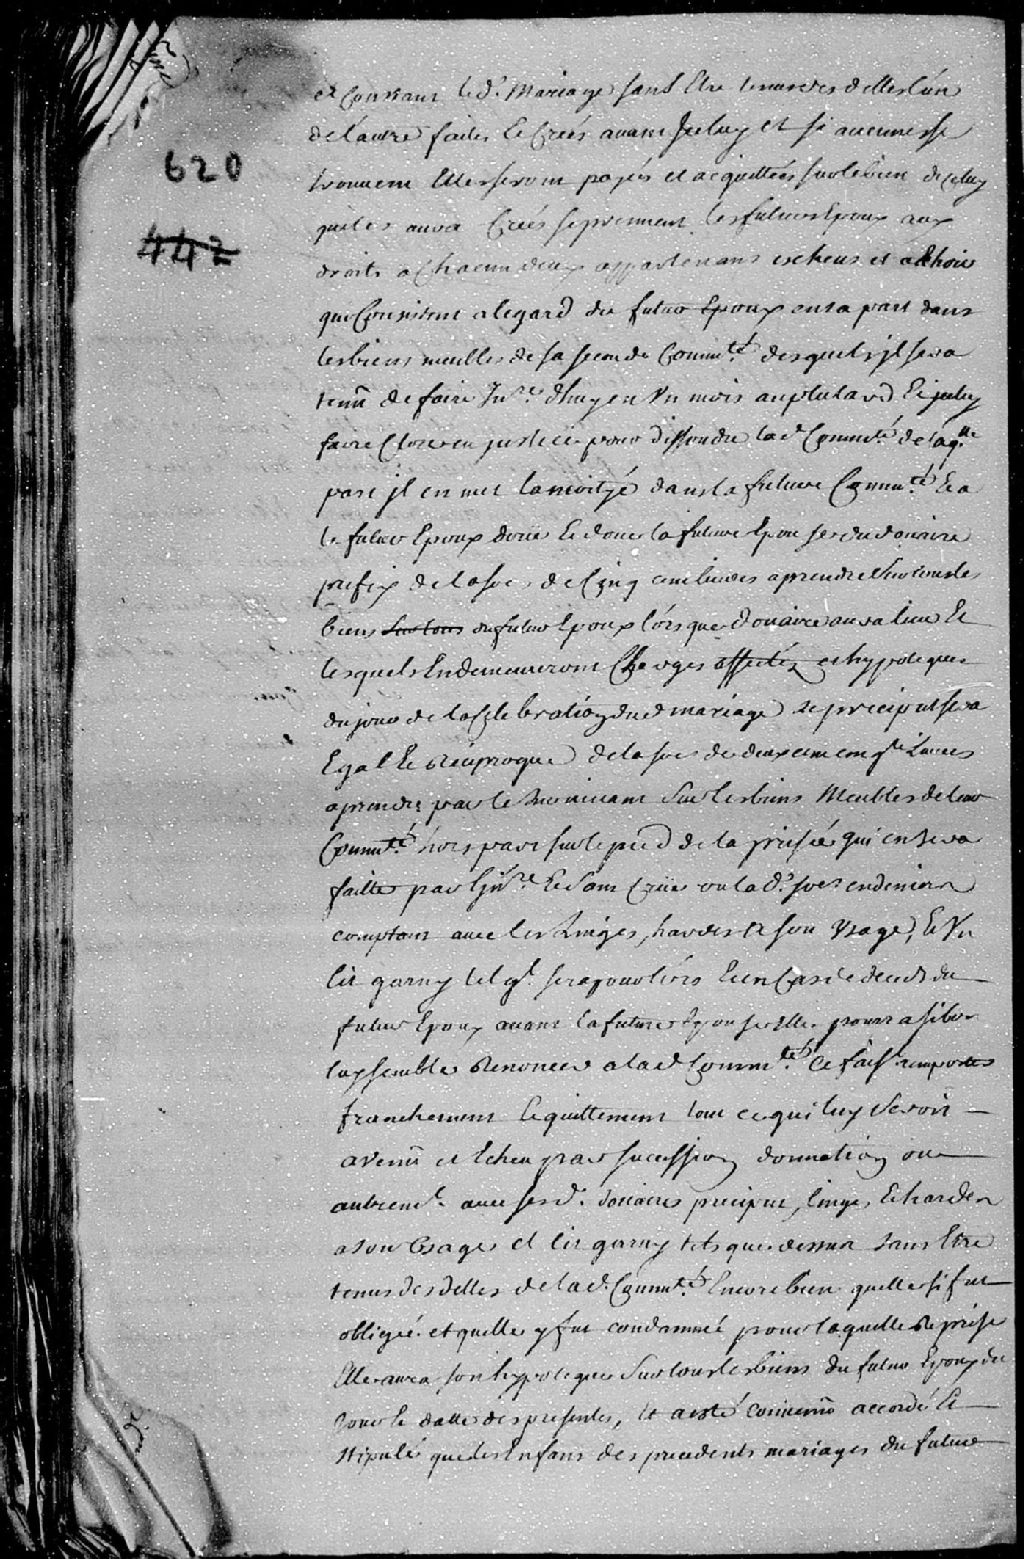 620
442
et Constant led. Mariage sans Etre tenus des debtes L'un
de L'autre faites & Crées avant Iceluy et si aucunes se
trouvent Elles seront payés et acquittées sur le bien de celuy
qui les aura Creés se prennent les futurs Epoux aux
droits a Chacun deux appartenans escheus et a Echoir
qui Consistent a legard du futur Epoux en sa part dans
les biens meubles de sa seconde Commté. desquels il sera
tenu de faire Inre. d'huy en Un mois au plutard & iceluy
faire Clore en justice pour dissoudre lad. Commté. de laqlle
part il en met la moityé dans la future Commté. & a
le futur Epoux doüé & doue la future Epouse du douaire
prefix de la soe. de Cinq cent livres a prendre sur tous les
biens sur tous du futur Epoux lorsque douaire aura lieu &
lesquels En demeureront Charges affectés et hypoteques
du jour de la Celebration dud mariage le preciput sera
Egal & reciproque de la soe. de deux cent cinqte. Livres
a prendre par le survivant Sur les biens Meubles de leur
Commté. hors part sur le pied de la prisée qui en sera
faitte par Inre. & sans Criée ou lad. soe. en deniers
comptans avec les Linges, hardes a son Usage, & Un
lit garny tel ql. sera pour lors & en Cas de deceds du
futur Epoux avant la future Epouse Elle pourra si bon
luy semble Renoncer a lad Commté. Ce faist. remportera
franchement & quittement tout ce qui luy seroit
avenu et Echeu par succession donnation ou
autremt. avec sesd. douaires preciput, linges & hardes
a son Usages et lit garny tels que dessus sans Etre
tenus des debtes de lad. Commté. Encore bien quelle si fut
obligée et quelle y fut condamnée pour laquelle Reprise
Elle aura son hypoteque Sur tous les biens du futur Epoux du
jour & datte des presentes, & a esté convenu accordé &
stipulé que les Enfans des precedents mariages du futur